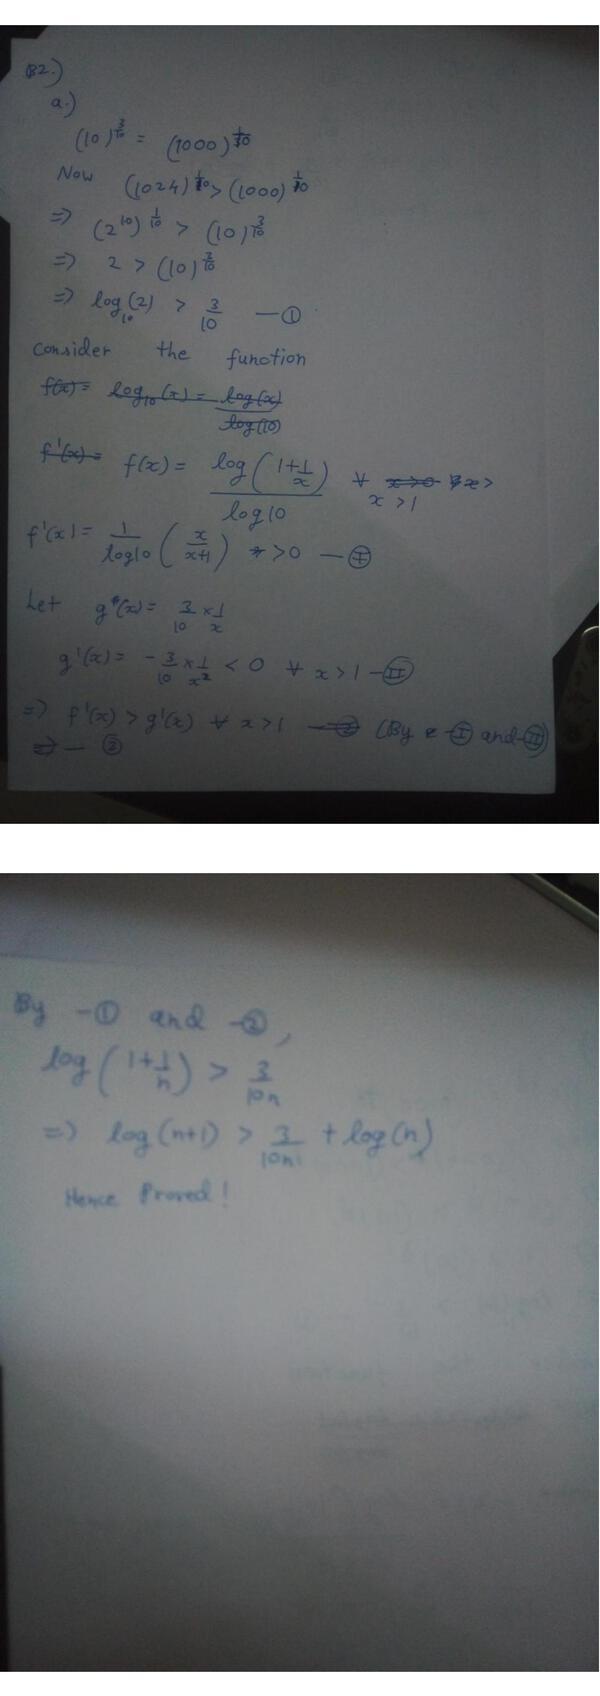 B2.)
a.)
(10)^{3/10} = (1000)^{1/10}
Now (1024)^{1/10} > (1000)^{1/10}
=> (2^{10})^{1/10} > (10)^{3/10}
=> 2 > (10)^{3/10}
=> log_{10}(2) > 3/10 — ①
Consider the function
f(x) = log_{10}(x) = log(x)/log(10)
f'(x) = f(x) = log(1+1/x)/log10 ∀ x>0 x>
x>1
f'(x) = 1/log10 (x/x+1) > 0 — Ⓘ
Let g(x) = 3/10 × 1/x
g'(x) = -3/10 × 1/x² < 0 ∀ x>1 — Ⓘⓘ
=> f'(x) > g'(x) ∀ x>1 — ② (By - Ⓘ and - Ⓘⓘ)
=> — ②
By - ① and - ②,
log(1+1/n) > 3/10n
=> log(n+1) > 3/10n + log(n)
Hence Proved!